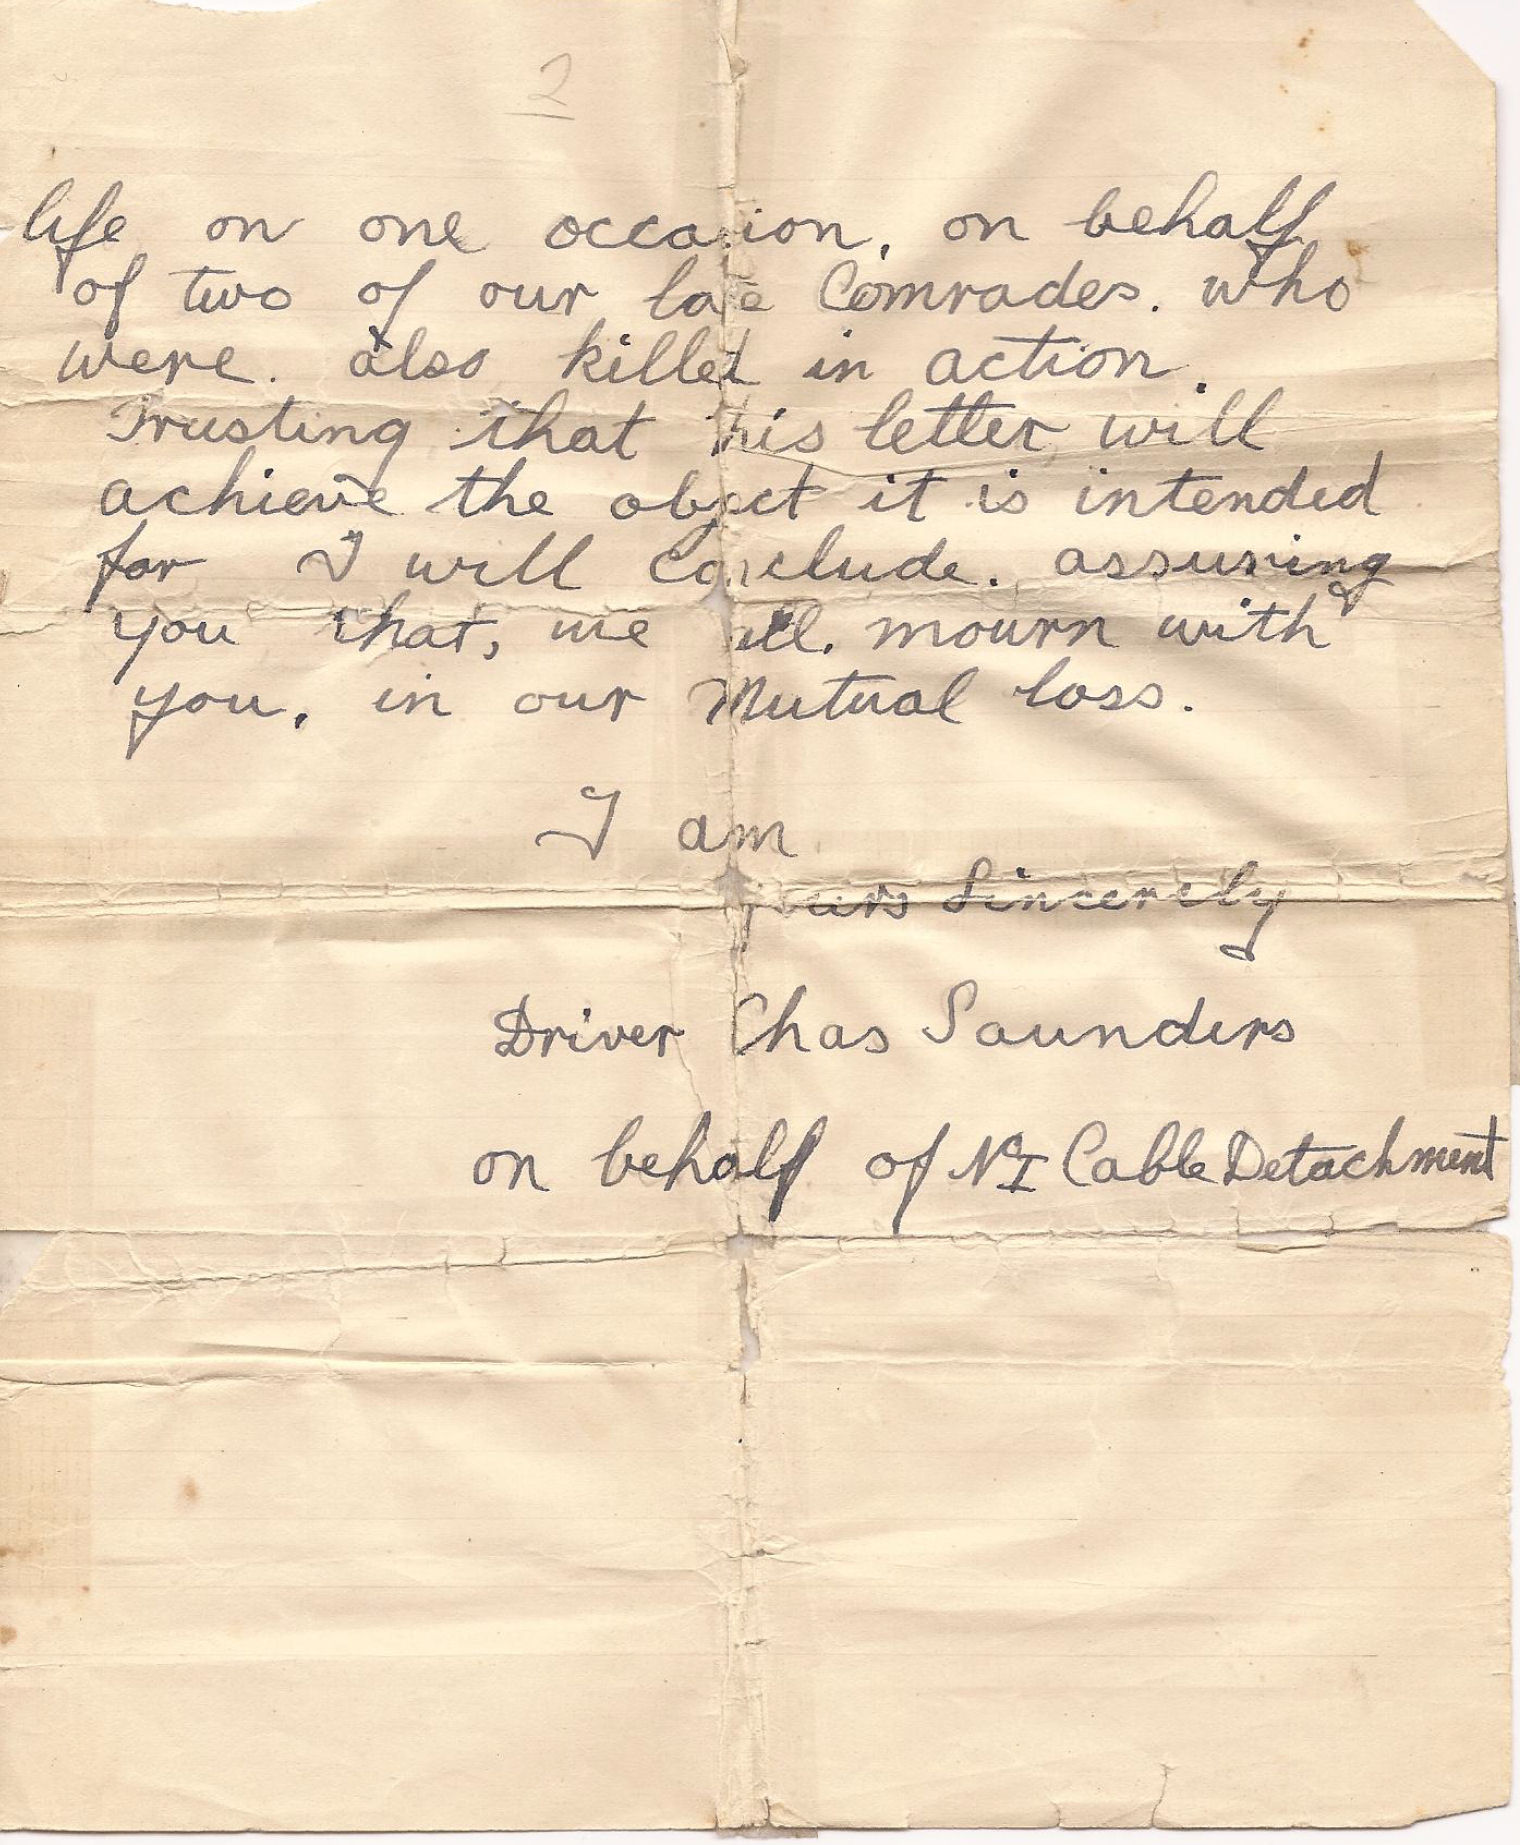 2
life on one occasion, on behalf
of two of our late Comrades. who
were. also killed in action.
Trusting that this letter will
achieve the object it is intended
for I will conclude. assuring
you that, we all. mourn with
you, in our Mutual loss.
I am
Yours Sincerely
Driver Chas Saunders
on behalf of No I Cable Detachment